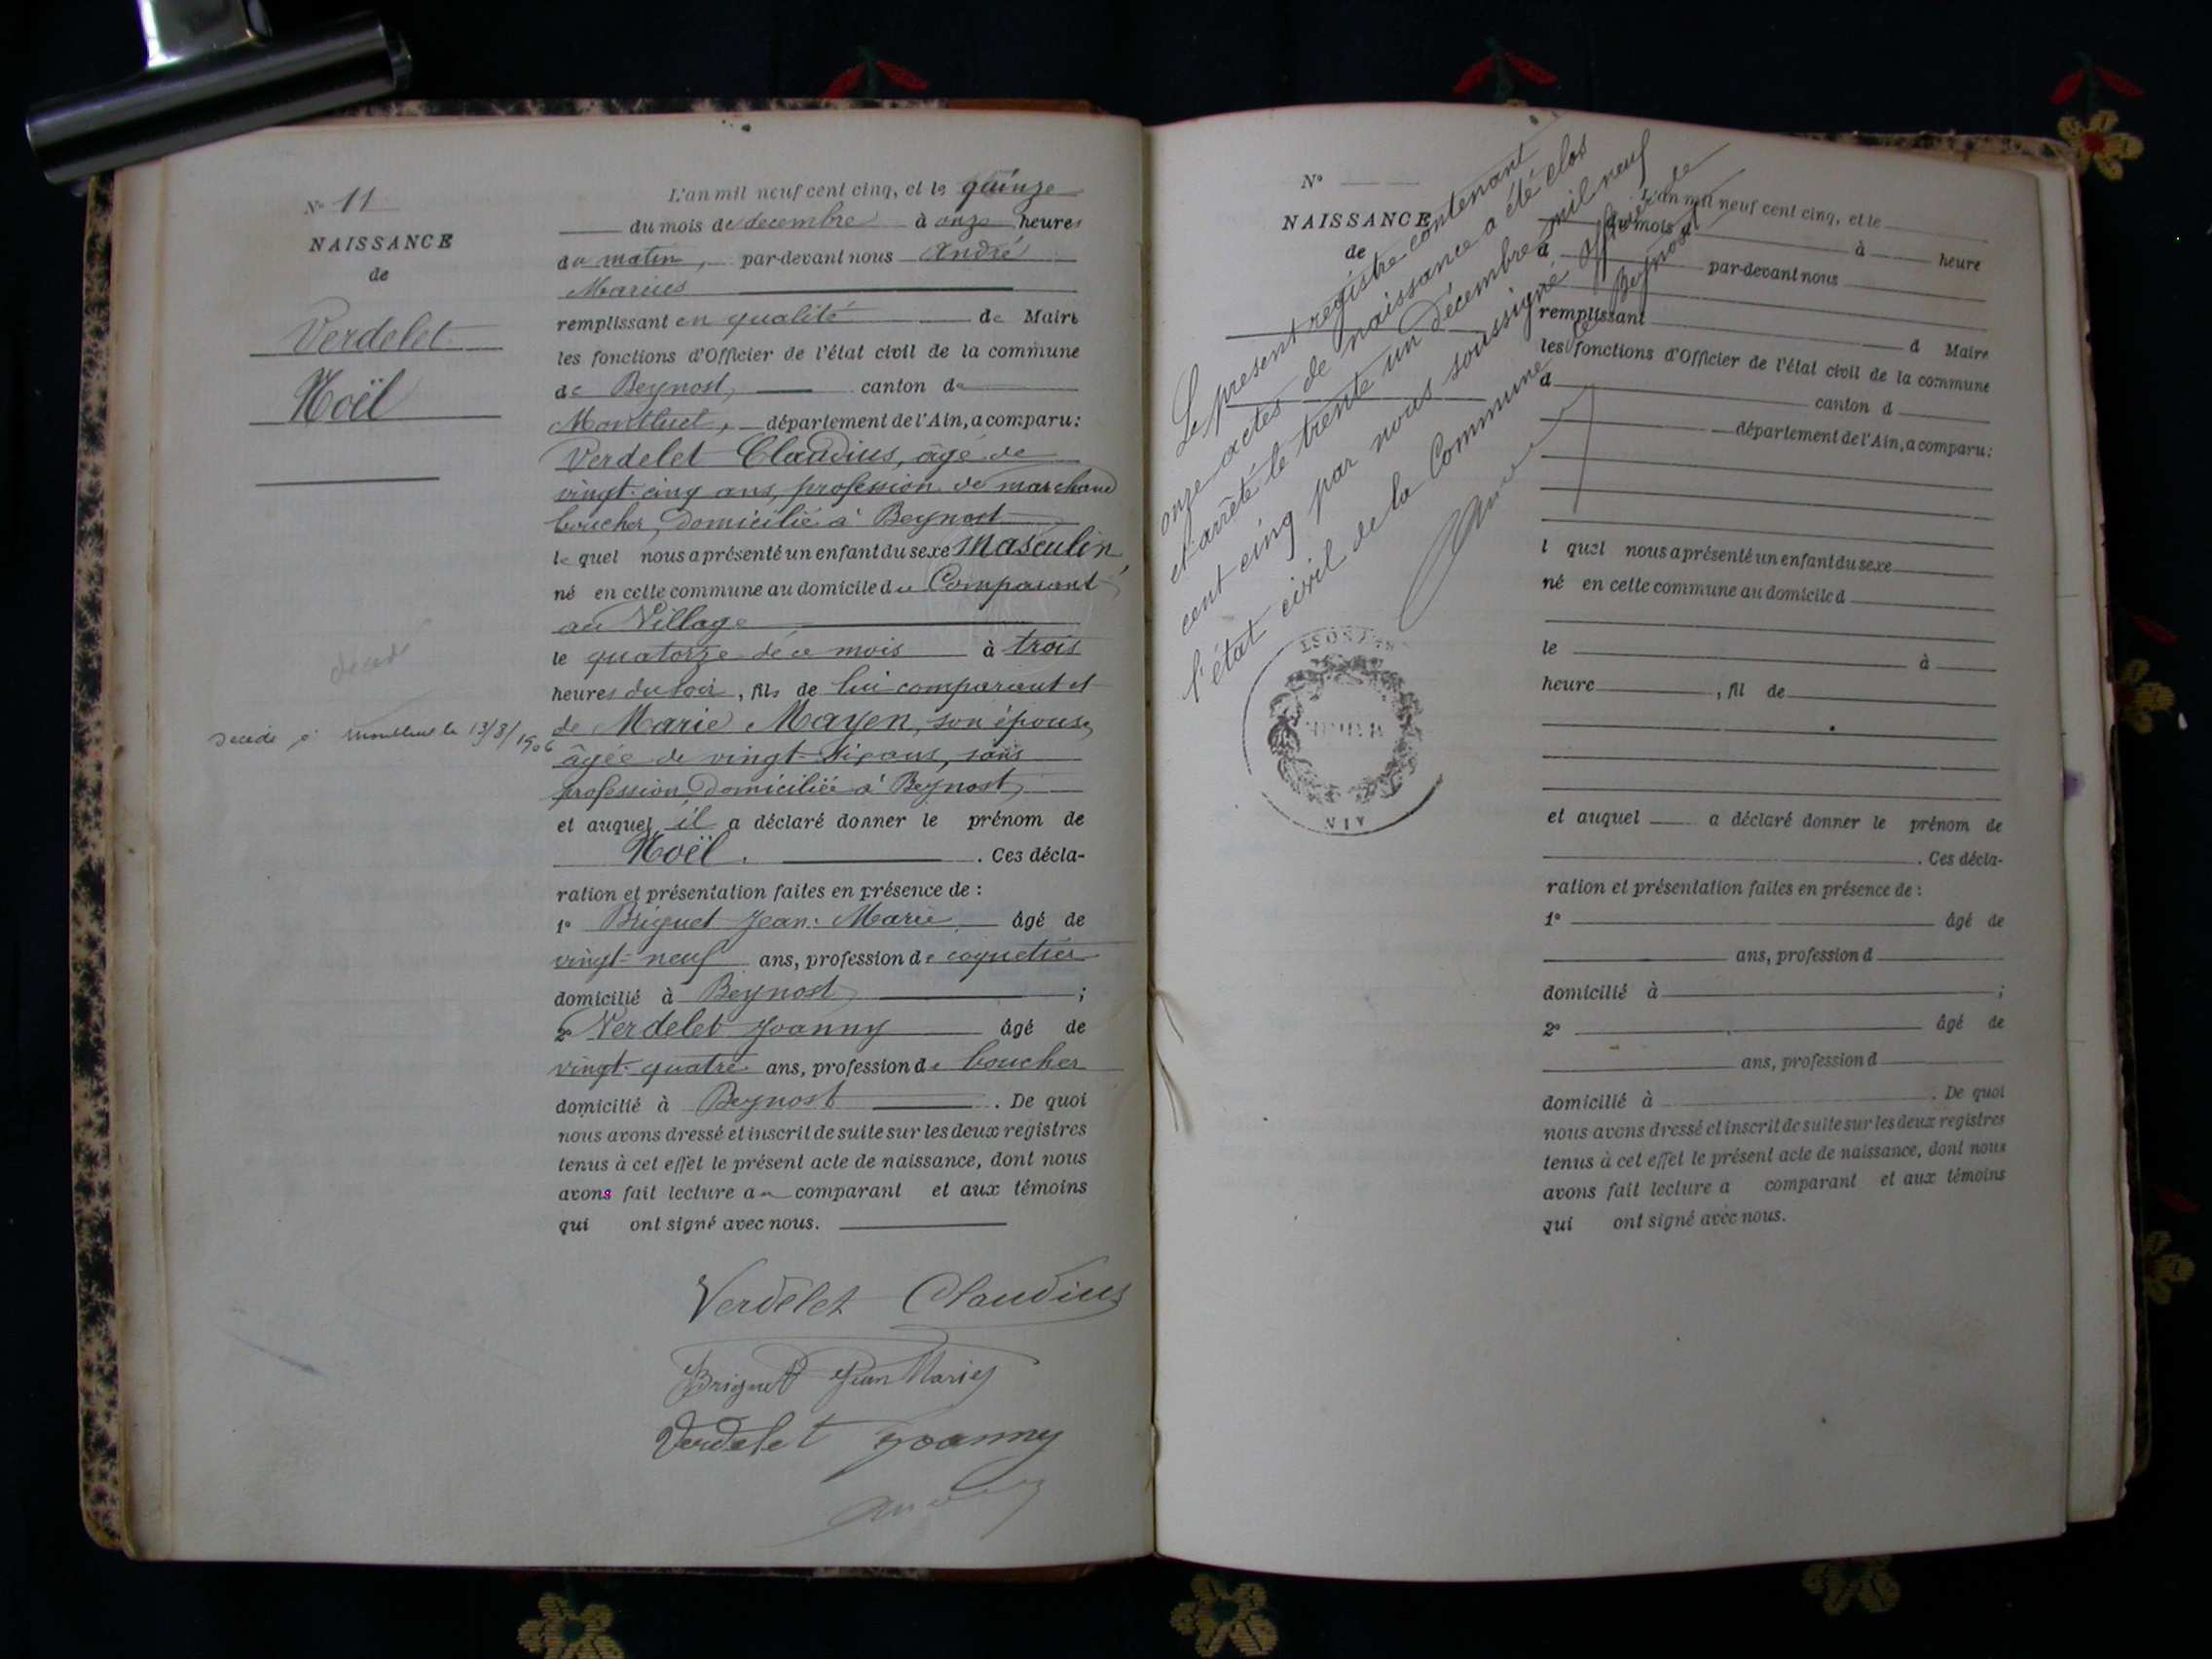 N° 11
NAISSANCE
de
Verdelet
Noël
décédé
Décédé à le 13/8/1906
L'an mil neuf cent cinq, et le quinze
du mois de décembre à onze heures
du matin, par-devant nous André
Marius
remplissant en qualité de Maire
les fonctions d'Officier de l'état civil de la commune
de Beynost, canton de
Montluel, département de l'Ain, a comparu:
Verdelet Claudius, âgé de
vingt-cinq ans, profession de marchand
boucher, domicilié à Beynost
lequel nous a présenté un enfant du sexe Masculin
né en cette commune au domicile du Comparant,
au Village
le quatorze de ce mois à trois
heures du soir, fils de lui comparant et
de Marie Mayen, son épouse,
âgée de vingt-six ans, sans
profession, domiciliée à Beynost,
et auquel il a déclaré donner le prénom de
Noël. . Ces décla-
ration et présentation faites en présence de :
1° Briquet Jean-Marie, âgé de
vingt-neuf ans, profession de coquetier
domicilié à Beynost ;
2° Verdelet Joanny âgé de
vingt-quatre ans, profession de boucher
domicilié à Beynost . De quoi
nous avons dressé et inscrit de suite sur les deux registres
tenus à cet effet le présent acte de naissance, dont nous
avons fait lecture au comparant et aux témoins
qui ont signé avec nous.
Verdelet Claudius
Briquet Jean Marie
Verdelet Joanny
N°
NAISSANCE
de
Le présent registre contenant
onze actes de naissance a été clos
et arrêté le trente un décembre mil neuf
cent cinq par nous soussigné officier de
l'état civil de la Commune de Beynost
BEYNOST
MAIRIE
AIN
L'an mil neuf cent cinq, et le
du mois à heure
d par-devant nous
remplissant d Maire
les fonctions d'Officier de l'état civil de la commune
d canton d
département de l'Ain, a comparu:
l quel nous a présenté un enfant du sexe
né en cette commune au domicile d
le à
heure , fil de
et auquel a déclaré donner le prénom de
. Ces décla-
ration et présentation faites en présence de :
1° âgé de
ans, profession d
domicilié à ;
2° âgé de
ans, profession d
domicilié à . De quoi
nous avons dressé et inscrit de suite sur les deux registres
tenus à cet effet le présent acte de naissance, dont nous
avons fait lecture a comparant et aux témoins
qui ont signé avec nous.